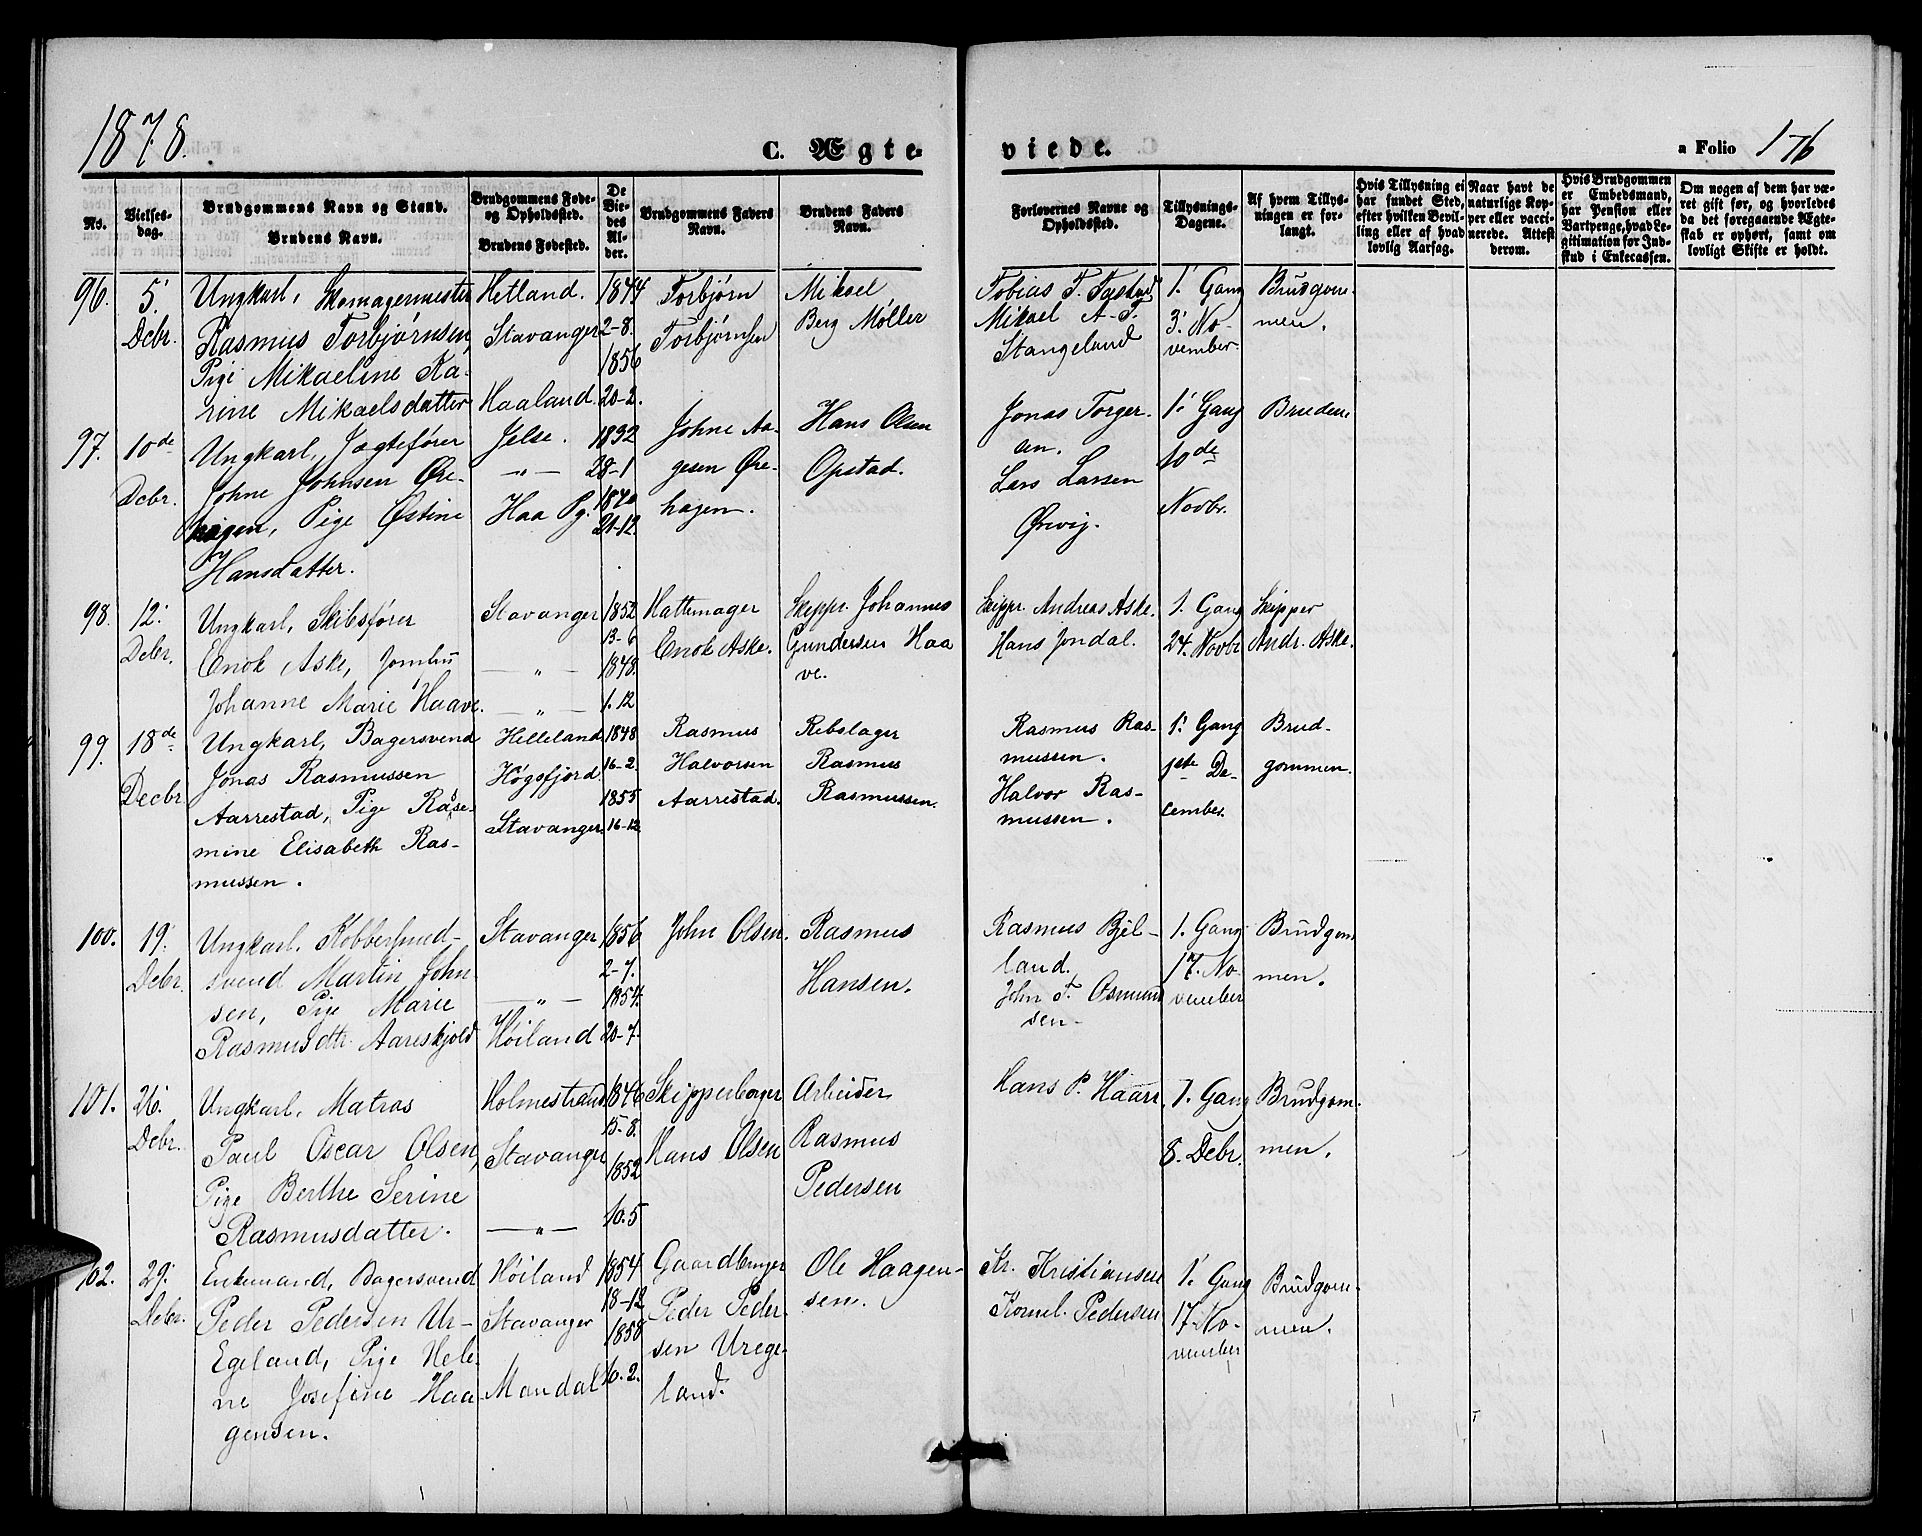 1878.
C. Ægteviede.
a Folio 176
No.
Vielses-
dag.
Brudgommens Navn og Stand.
Brudens Navn.
Brudgommens Føde-
og Opholdssted.
Brudens Fødested.
De
Vie-
des
Al-
der.
Brudgommens Faders
Navn.
Brudens Faders
Navn.
Forlovernes Navne og
Opholdssted.
Tillysnings-
Dagene.
Af hvem Tillys-
ningen er for-
langt.
Hvis Tillysning ei
har fundet Sted,
efter hvilken Bevil-
ling eller af hvad
lovlig Aarsag.
Naar havt de
naturlige Kop-
per eller vacci-
nerede. Attest
derom.
Hvis Brudgommen
er Embedsmand,
har Pension eller
Vartpenge, hvad Le-
gitimation for Ind-
skud i Enkecassen.
Om nogen af dem har væ-
ret gift før, og hvorledes
da det foregaaende Ægte-
skab er ophørt, samt om
lovligt Skifte er holdt.
96.
5'
Decbr.
Ungkarl, Skomagermester
Rasmus Torbjørnsen,
Pige Mikaeline Ka-
rine Mikaelsdatter
Hetland.
Stavanger
Haaland.
1844
2-8.
1856
20-2.
Torbjørn
Torbjørnsen
Mikael
Berg Møller
Tobias T. Tastad
Mikael A. T.
Stangeland
1' Gang
3' No-
vember.
Brudgom-
men.
97.
10de
Decbr.
Ungkarl, Jagtefører
Johne Johnsen Øre-
hagen, Pige Østine
Hansdatter.
Jelse.
—"—
Haa Pg.
1832
28-1
1840
21-12.
Johne Aa-
gesen Øre-
hagen.
Hans Olsen
Opstad.
Jonas Torger-
sen.
Lars Larsen
Ørevig.
1' Gang
10de
Novbr.
Bruden
98.
12'
Decbr.
Ungkarl, Skibsfører
Enok Aske, Jomfru
Johanne Marie Haave.
Stavanger
— " —
— " —
1852
13-6
1848.
1.12
Hattemager
Enok Aske.
Skippr. Johannes
Gundersen Haa
ve.
Skippr. Andreas Aske.
Hans Jondal.
1. Gang
24. Novbr
Skipper
Andr. Aske.
99.
18de
Decbr
Ungkarl, Bagersvend
Jonas Rasmussen
Aarrestad, Pige Rase-
mine Elisabeth Ras-
mussen.
Helleland
Høgsfjord
Stavanger
1848
16-2.
1855
16-12
Rasmus
Halvorsen
Aarrestad.
Rebslager
Rasmus
Rasmussen.
Rasmus Ras-
mussen.
Halvor Ras-
mussen.
1' Gang
1ste De-
cember.
Brud-
gommen.
100.
19'
Decbr.
Ungkarl. Kobbersmed-
svend Martin John-
sen, Pige Marie
Rasmusdtr. Aareskjold
Stavanger
— " —
Høiland
1856
2-7.
1854.
20-7.
John Olsen.
Rasmus
Hansen.
Rasmus Bjel-
land.
John T. Osmund
sen-
1. Gang
17. No-
vember
Brudgom
men.
101.
26'
Decbr.
Ungkarl, Matros
Paul Oscar Olsen,
Pige Berthe Serine
Rasmusdatter.
Holmestrand
Stavanger
— " —
1846
15-8.
1852
10.5
Skipperborger
Hans Olsen
Arbeider
Rasmus
Pedersen
Hans P. Haarr.
1. Gang
8. Decbr.
Brudgom-
men.
102.
29'
Decbr.
Enkemand, Bagersvend
Peder Pedersen Ur-
Egeland, Pige Hele-
ne Josefine Haa-
gensen.
Høiland
Stavanger
Mandal
1854
18-12
1858
10.2.
Gaardbruger
Peder Peder-
sen Urege-
land.
Ole Haagen-
sen.
Kr. Kristiansen
Kornel. Pedersen
1' Gang
17. No-
vember
Brudgom-
men.